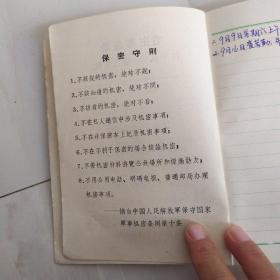 保密守则
1、不该说的机密，绝对不说；
2、不该知道的机密，绝对不问；
3、不该看的机密，绝对不看；
4、不在私人通信中涉及机密事项；
5、不在非保密本上记录机密事项；
6、不在不利于保密的场合谈论机密；
7、不带机密材料游览公共场所和探亲访友；
8、不用公用电话、明码电报、普通邮局办理
机密事项。
——摘自中国人民解放军保守国家
军事机密条例第十条
9月9日星期六上午
2.9月16日